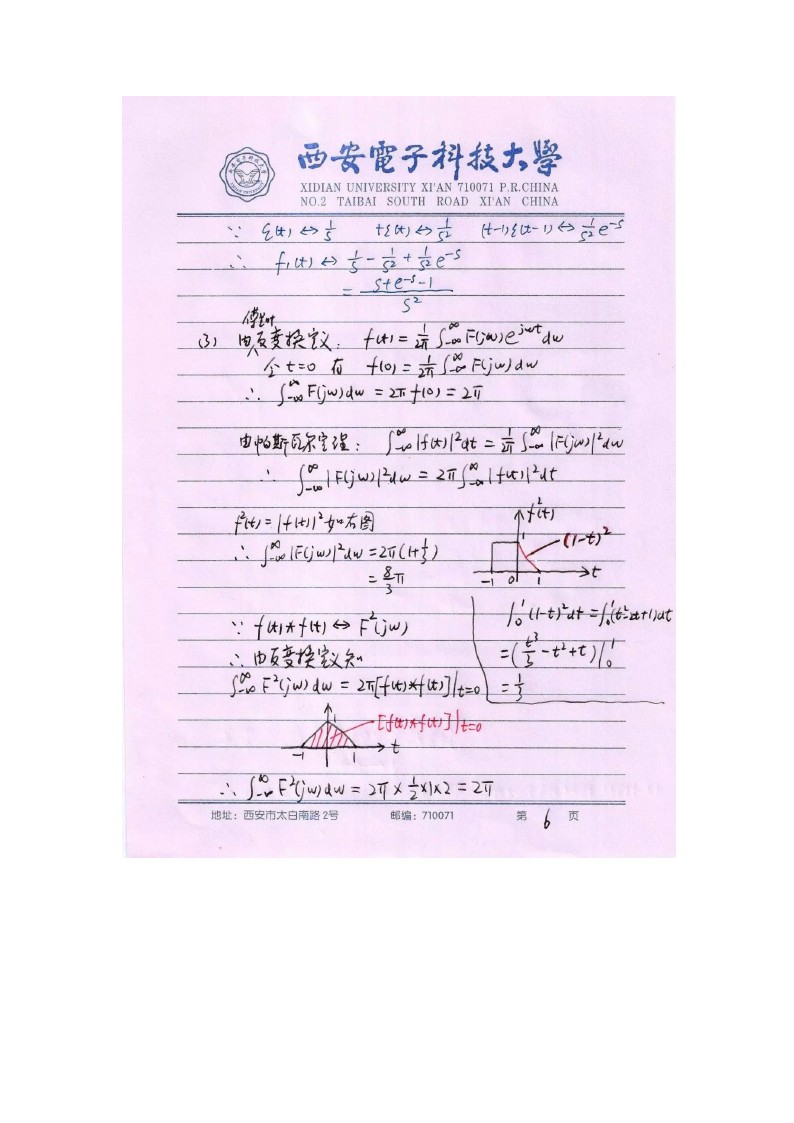 西安電子科技大學
XIDIAN UNIVERSITY XI'AN 710071 P.R.CHINA
NO.2 TAIBAI SOUTH ROAD XI'AN CHINA
∵ ε(t) ↔ 1/s tε(t) ↔ 1/s² (t-1)ε(t-1) ↔ 1/s² e^-s
∴ f₁(t) ↔ 1/s - 1/s² + 1/s² e^-s
= (s+e^-s-1)/s²
(3) 由傅里叶反变换定义: f(t) = 1/2π ∫_-∞^∞ F(jω)e^jωt dω
令 t=0 有 f(0) = 1/2π ∫_-∞^∞ F(jω)dω
∴ ∫_-∞^∞ F(jω)dω = 2πf(0) = 2π
由帕斯瓦尔定理: ∫_-∞^∞ |f(t)|²dt = 1/2π ∫_-∞^∞ |F(jω)|²dω
∴ ∫_-∞^∞ |F(jω)|²dω = 2π∫_-∞^∞ |f(t)|²dt
f²(t) = |f(t)|² 如右图
∴ ∫_-∞^∞ |F(jω)|²dω = 2π(1+1/3)
= 8/3 π
f²(t)
1
(1-t)²
-1 0 1 t
∫₀¹ (1-t)²dt = ∫₀¹(t²-2t+1)dt
= (t³/3 - t² + t)|₀¹
= 1/3
∵ f(t)*f(t) ↔ F²(jω)
∴ 由反变换定义知
∫_-∞^∞ F²(jω)dω = 2π[f(t)*f(t)]|t=0
1
[f(t)*f(t)]|t=0
-1 1 t
∴ ∫_-∞^∞ F²(jω)dω = 2π × 1/2 ×1×2 = 2π
地址: 西安市太白南路2号 邮编: 710071 第 6 页